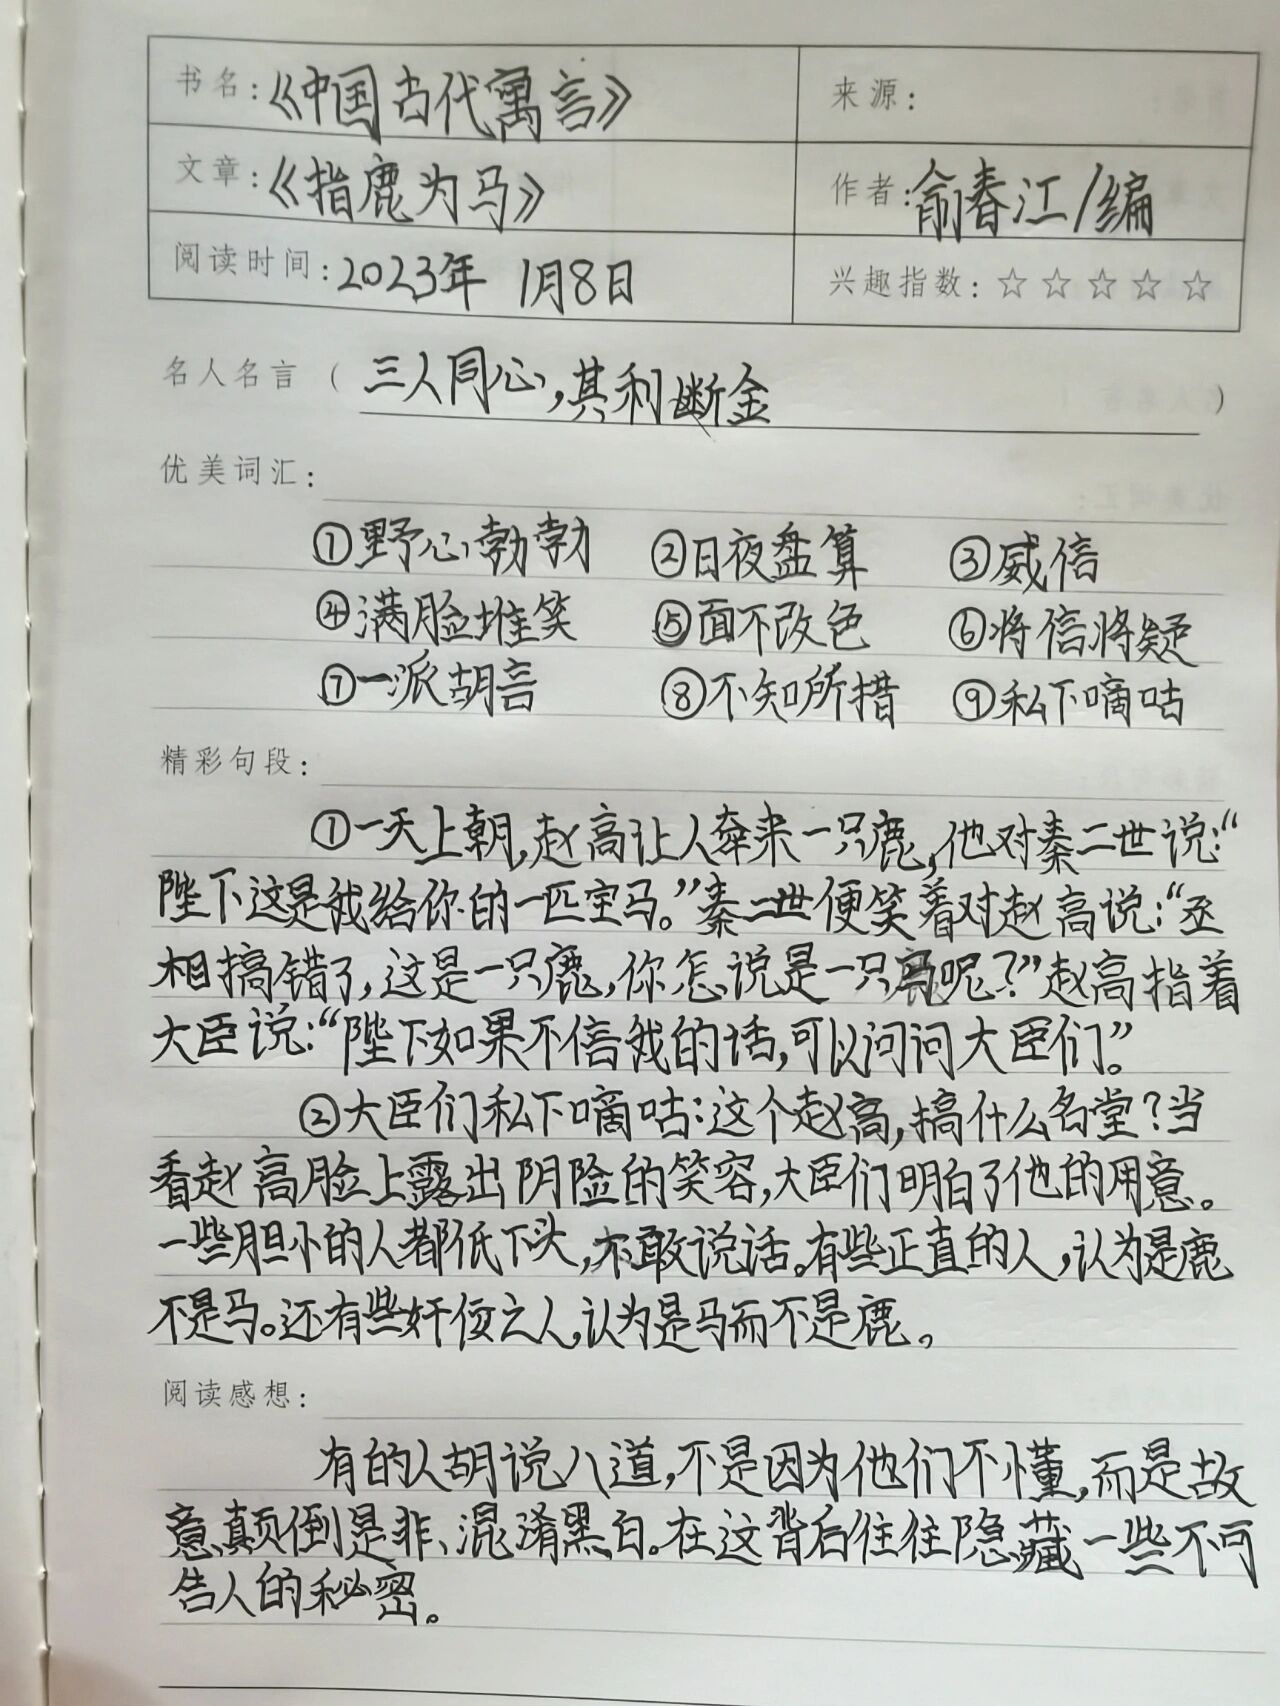 书名:《中国古代寓言》 来源:
文章:《指鹿为马》 作者:俞春江/编
阅读时间:2023年 1月8日 兴趣指数:☆☆☆☆☆
名人名言（三人同心,其利断金）
优美词汇:
①野心勃勃 ②日夜盘算 ③威信
④满脸堆笑 ⑤面不改色 ⑥将信将疑
⑦一派胡言 ⑧不知所措 ⑨私下嘀咕
精彩句段:
①一天上朝,赵高让人牵来一只鹿,他对秦二世说:“
陛下这是我给你的一匹宝马。”秦二世便笑着对赵高说:“丞
相搞错了,这是一只鹿,你怎说是一只马呢?”赵高指着
大臣说:“陛下如果不信我的话,可以问问大臣们。”
②大臣们私下嘀咕:这个赵高,搞什么名堂?当
看赵高脸上露出阴险的笑容,大臣们明白了他的用意。
一些胆小的人都低下头,不敢说话。有些正直的人,认为是鹿
不是马。还有些奸佞之人,认为是马而不是鹿。
阅读感想:
有的人胡说八道,不是因为他们不懂,而是故
意颠倒是非、混淆黑白。在这背后往往隐藏一些不可
告人的秘密。